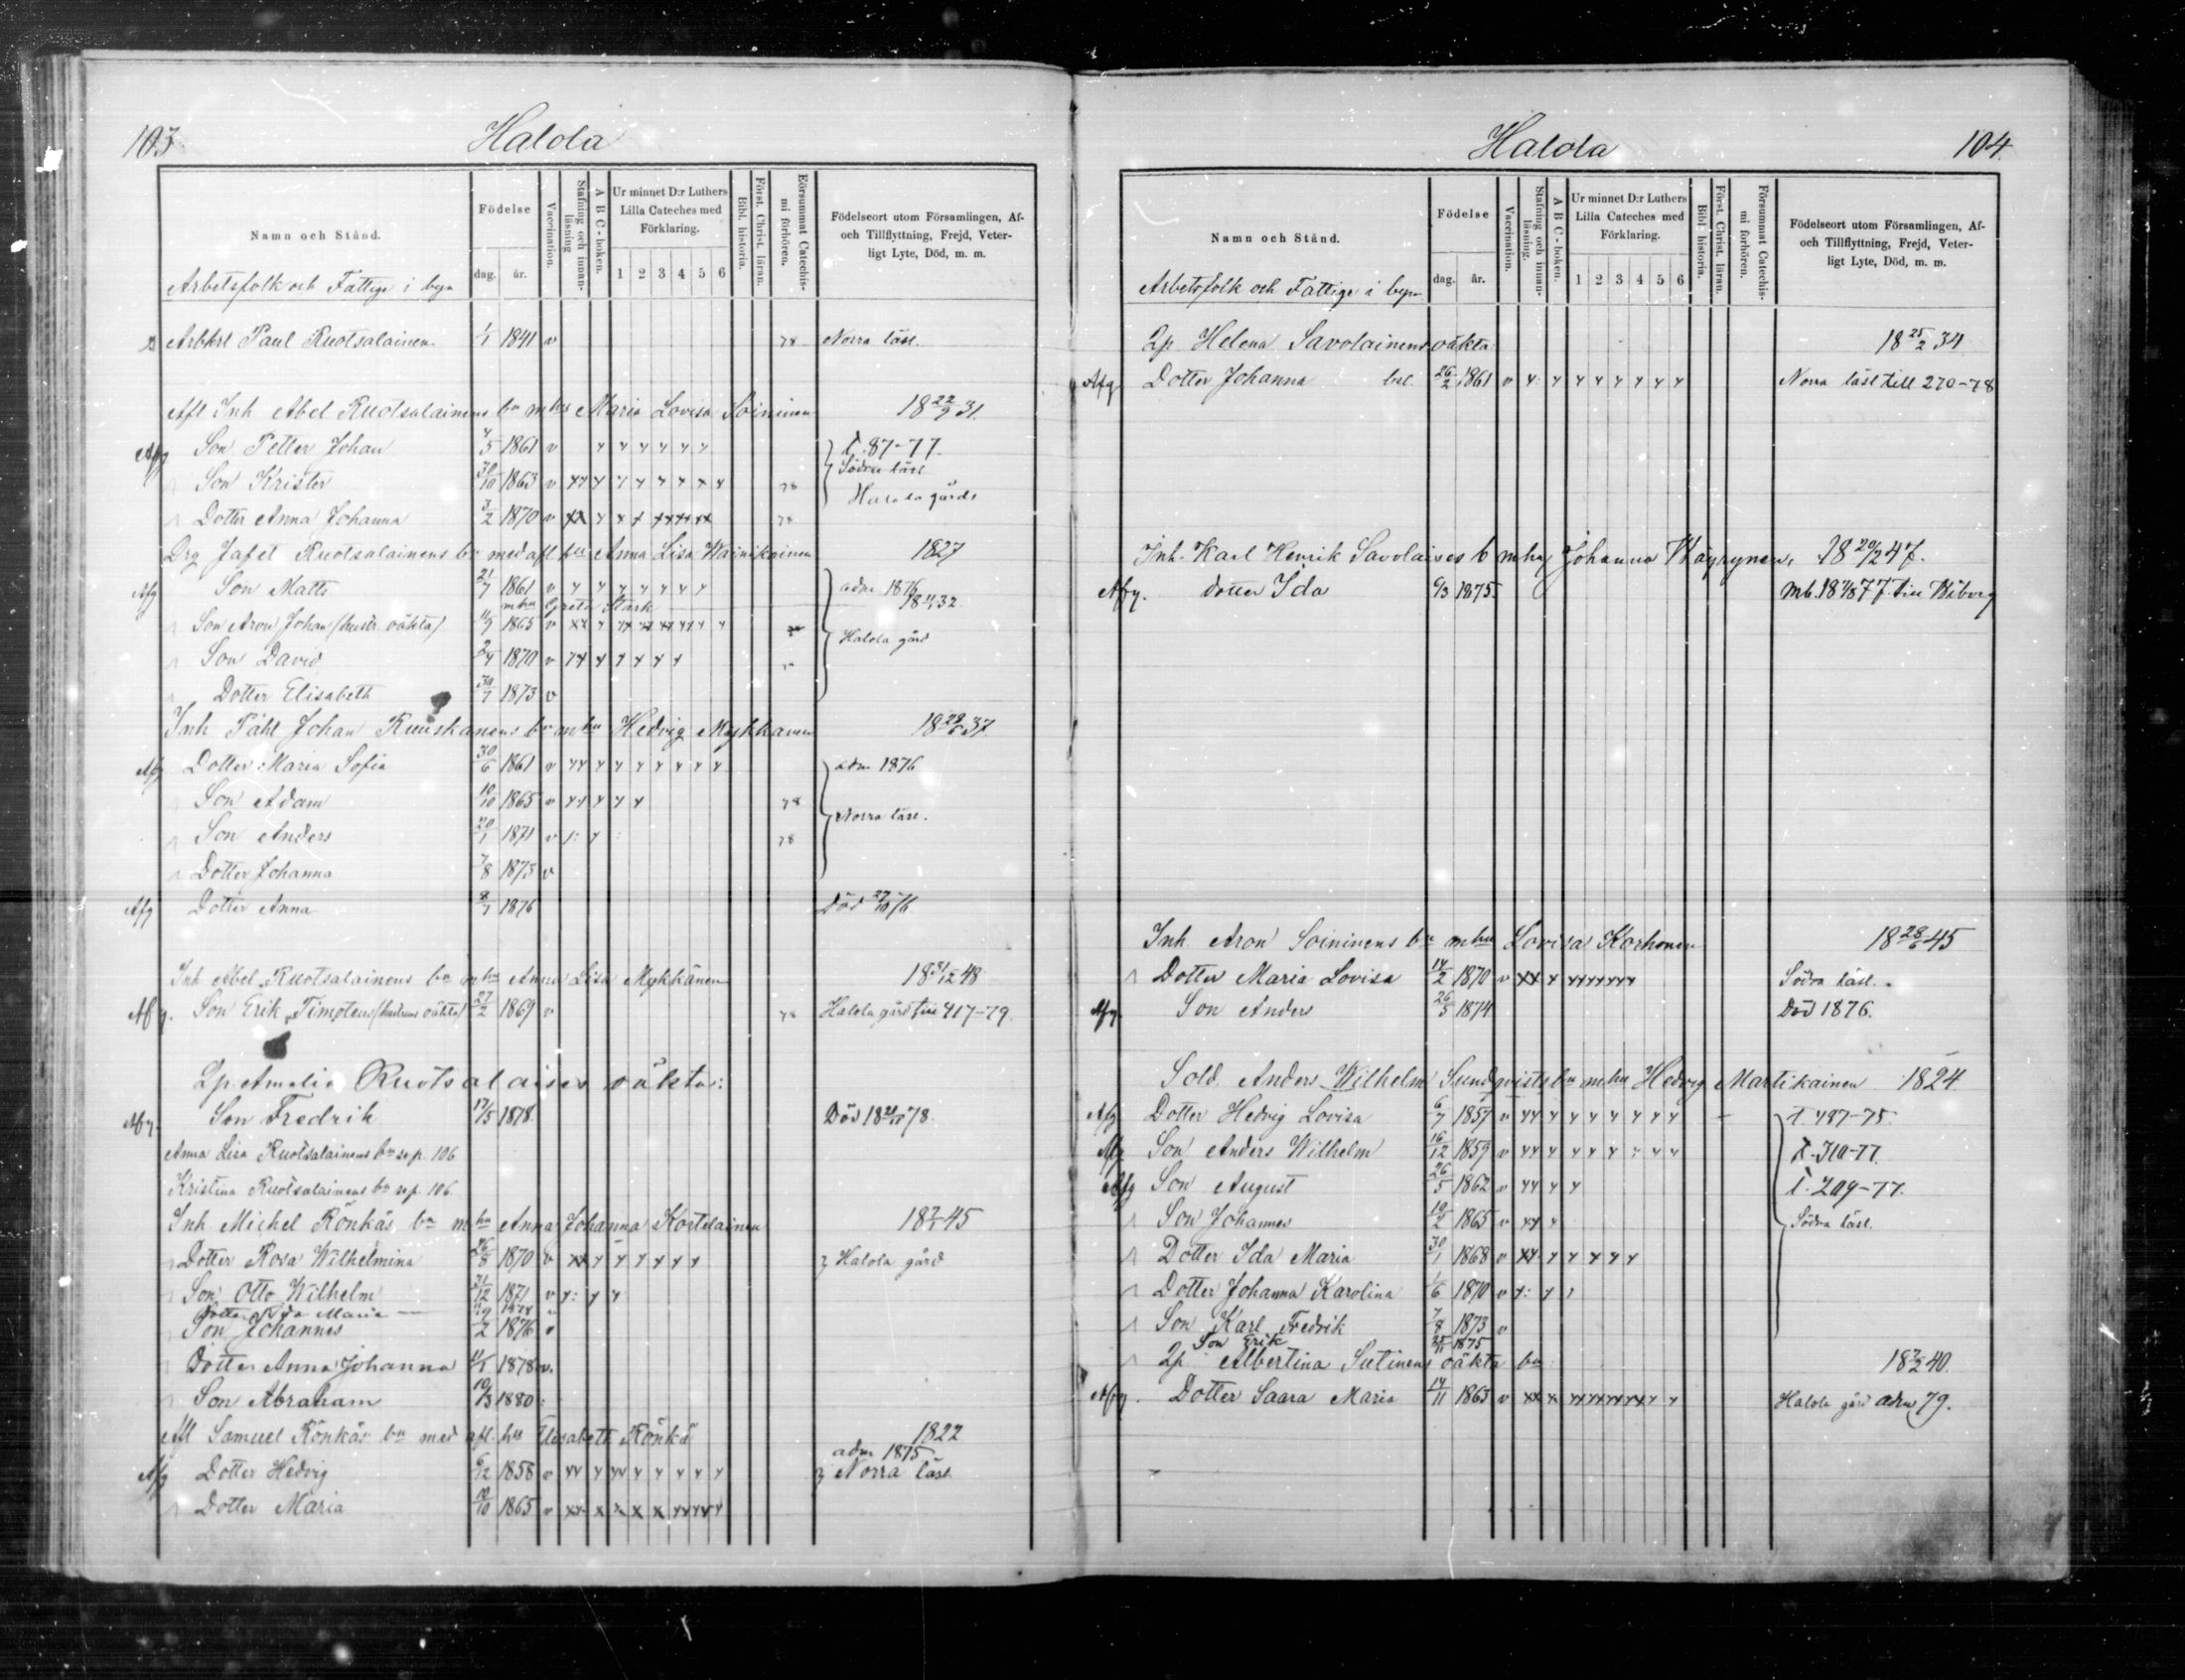 103.
Halola
Namn och Stånd.
Födelse
dag.
år.
Vaccination.
Stafning och innan-läsning
A B C-boken.
Ur minnet D:r Luthers Lilla Cateches med Förklaring.
1 2 3 4 5 6
Bibl. historia.
Först. Christ. läran.
Försummat Catechis-mi förhören.
Födelseort utom Församlingen, Af-
och Tillflyttning, Frejd, Veter-
ligt Lyte, Död, m. m.
Arbetsfolk och Fattige i byn
Arbkrl Paul Ruotsalainen 1/1 1841 v 78 Norra läsl.
Afl Inh Abel Ruotsalainens bn m hu Maria Lovisa Soininen 18 22/9 31.
Afg Son Petter Johan 4/5 1861 v T. 87-77.
Son Krister 30/10 1863 v 78 Södra läsl
Dotter Anna Johanna 3/2 1870 v 78 Halola gård
Drg Jafet Ruotsalainens bn med afl hu Anna Lisa Wainikainen 1827
Afg Son Matts 21/7 1861 v adm 1876
mhu Greta Stark 32
Son Aron Johan (hustr. oäkta) 11/9 1865 v Halola gård
Son David 2/4 1870 v
Dotter Elisabeth 30/7 1873 v
Inh Påhl Johan Ruuskanens bn m hu Hedvig Mykkanen 18 28/6 37
Afg Dotter Maria Sofia 30/6 1861 v adm 1876
Son Adam 10/10 1865 v 78
Son Anders 20/1 1871 v 78 Norra läsl.
Dotter Johanna 7/8 1873 v
Afg Dotter Anna 8/7 1876 Död 27/10 76.
Inh Abel Ruotsalainens bn m hu Anna Lisa Mykkänen 18 31/12 48
Afg. Son Erik Timoteus (hustruns oäkta) 27/2 1869 v 78 Halola gård till 417-79.
Lp. Amalia Ruotsalaises oäkta:
Afg. Son Fredrik 17/5 1878. Död 18 21/10 78.
Anna Lisa Ruotsalainens bn se p. 106
Kristina Ruotsalainens bn se p. 106.
Inh Michel Rönkäs bn m hu Anna Johanna Kortelainen 18 7/1 45
Dotter Rosa Wilhelmina 26/8 1870 v Halola gård
Son Otto Wilhelm 31/12 1871 v
Dotter Ida Maria
Son Johannes 1/2 1876 v
Dotter Anna Johanna 11/1 1878 v.
Son Abraham 10/3 1880
Afl Samuel Rönkäs bn med afl. hu Elisabeth Rönkä 1822
adm 1875
Afg Dotter Hedvig 6/12 1858 v Norra läsl
Dotter Maria 12/10 1865 v
Halola
104.
Namn och Stånd.
Födelse
dag.
år.
Vaccination.
Stafning och innan-läsning.
A B C-boken.
Ur minnet D:r Luthers Lilla Cateches med Förklaring.
1 2 3 4 5 6
Bibl. historia.
Först. Christ. läran.
Försummat Catechis-mi förhören.
Födelseort utom Församlingen, Af-
och Tillflyttning, Frejd, Veter-
ligt Lyte, Död, m. m.
Arbetsfolk och Fattige i byn
Lp Helena Savolainens oäkta 18 25/2 34
Afg Dotter Johanna 26/2 1861 v Norra läsl till 270-78
Inh. Karl Henrik Savolaises b m hu Johanna Wäyrynen, 18 20/2 47.
Afg. dotter Ida 6/3 1875. till Wiborg
Inh Aron Soininens bn m hu Lovisa Korhonen 18 28/6 45
Dotter Maria Lovisa 14/2 1870 v Södra läsl.
Afg. Son Anders 26/5 1874 Död 1876.
Sold. Anders Wilhelm Sundqvists bn m hu Hedvig Martikainen 1824
Afg Dotter Hedvig Lovisa 6/7 1857 v T 487-75.
Afg Son Anders Wilhelm 16/12 1859 v T. 310-77.
Afg Son August 26/5 1862 v T. 209-77.
Son Johannes 10/2 1865 v Södra läsl.
Dotter Ida Maria 30/1 1868 v
Dotter Johanna Karolina 1/6 1870 v
Son Karl Fredrik 7/8 1873 v
Son Erik 25/11 1875
Lp Albertina Sutinens oäkta bn 18 7/2 40.
Afg. Dotter Saara Maria 14/11 1863 v Halola gård adm 79.